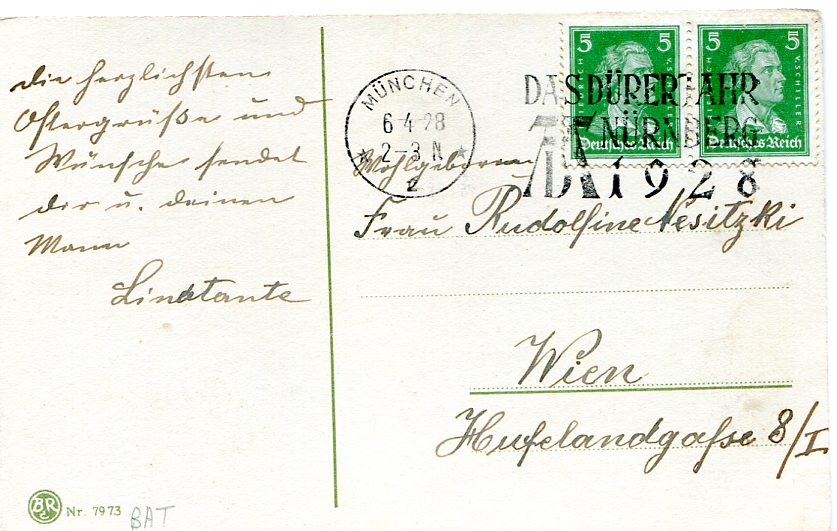 die herzlichsten
Ostergrüße und
Wünsche sendet
dir u. deinen
Mann
Linatante
5 5
FRIEDRICH V. SCHILLER
Deutsches Reich
5 5
FRIEDRICH V. SCHILLER
Deutsches Reich
MÜNCHEN
6 4 28
2-3 N
2
DAS DÜRERJAHR
NÜRNBERG
1928
Wohlgeboren
Frau Rudolfine Nesitzki
Wien
Hufelandgaße 8/I
BR
Nr. 7973
BAT